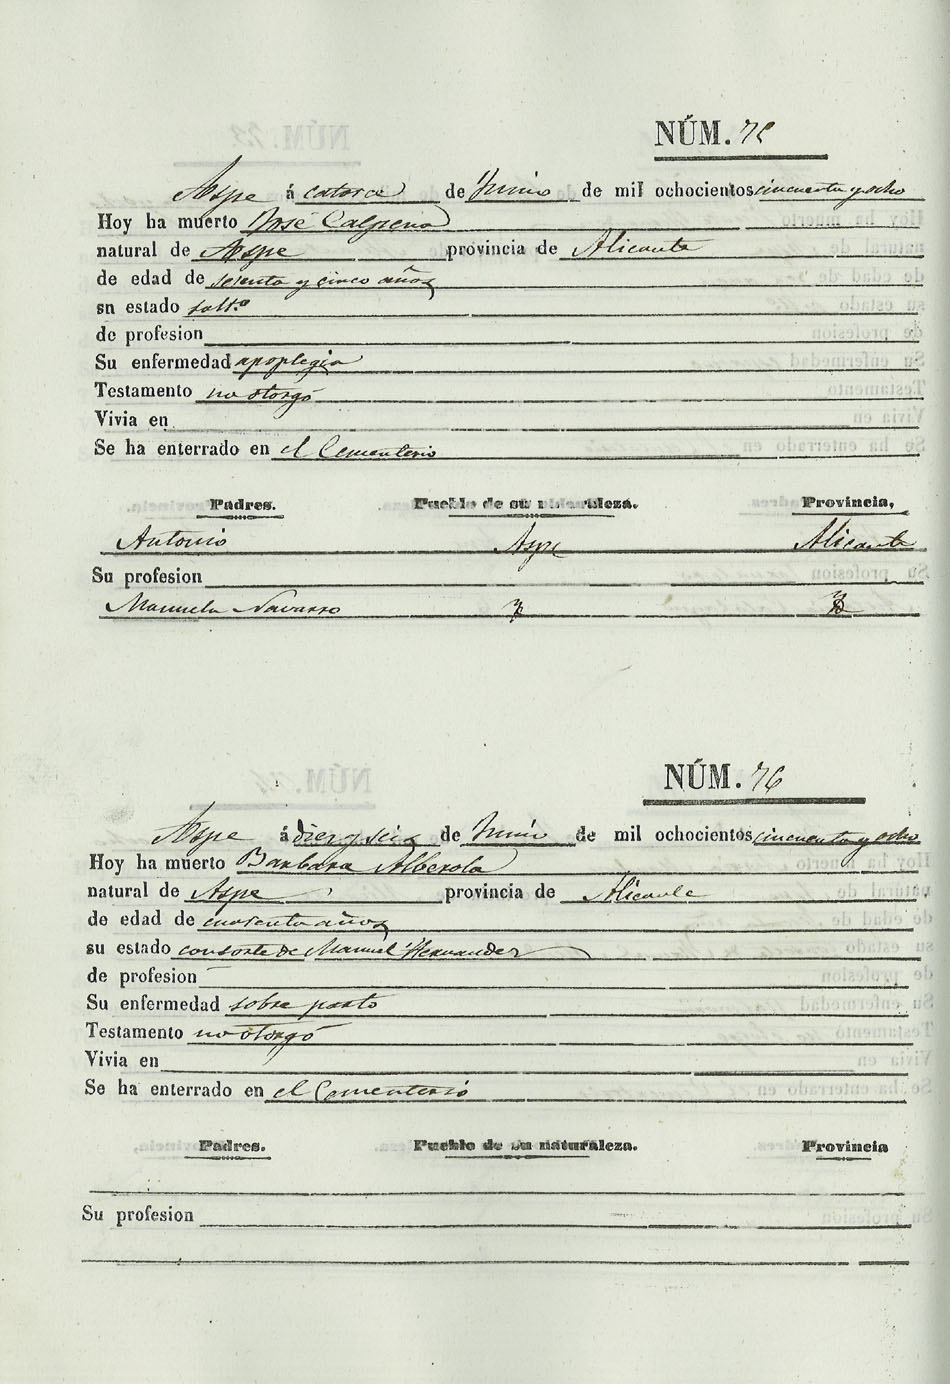 NÚM. 75
Aspe á catorce de Junio de mil ochocientos cincuenta y ocho
Hoy ha muerto José Calpena
natural de Aspe provincia de Alicante
de edad de sesenta y cinco años
sn estado solt.º
de profesion
Su enfermedad apoplegia
Testamento no otorgó
Vivia en
Se ha enterrado en el Cementerio
Padres. Pueblo de su naturaleza. Provincia,
Antonio Aspe Alicante
Su profesion
Manuela Navarro
NÚM. 76
Aspe á diez y seis de Junio de mil ochocientos cincuenta y ocho
Hoy ha muerto Barbara Alberola
natural de Aspe provincia de Alicante
de edad de cuarenta años
su estado consorte de Manuel Hernandez
de profesion
Su enfermedad sobre parto
Testamento no otorgó
Vivia en
Se ha enterrado en el Cementerio
Padres. Pueblo de su naturaleza. Provincia
Su profesion